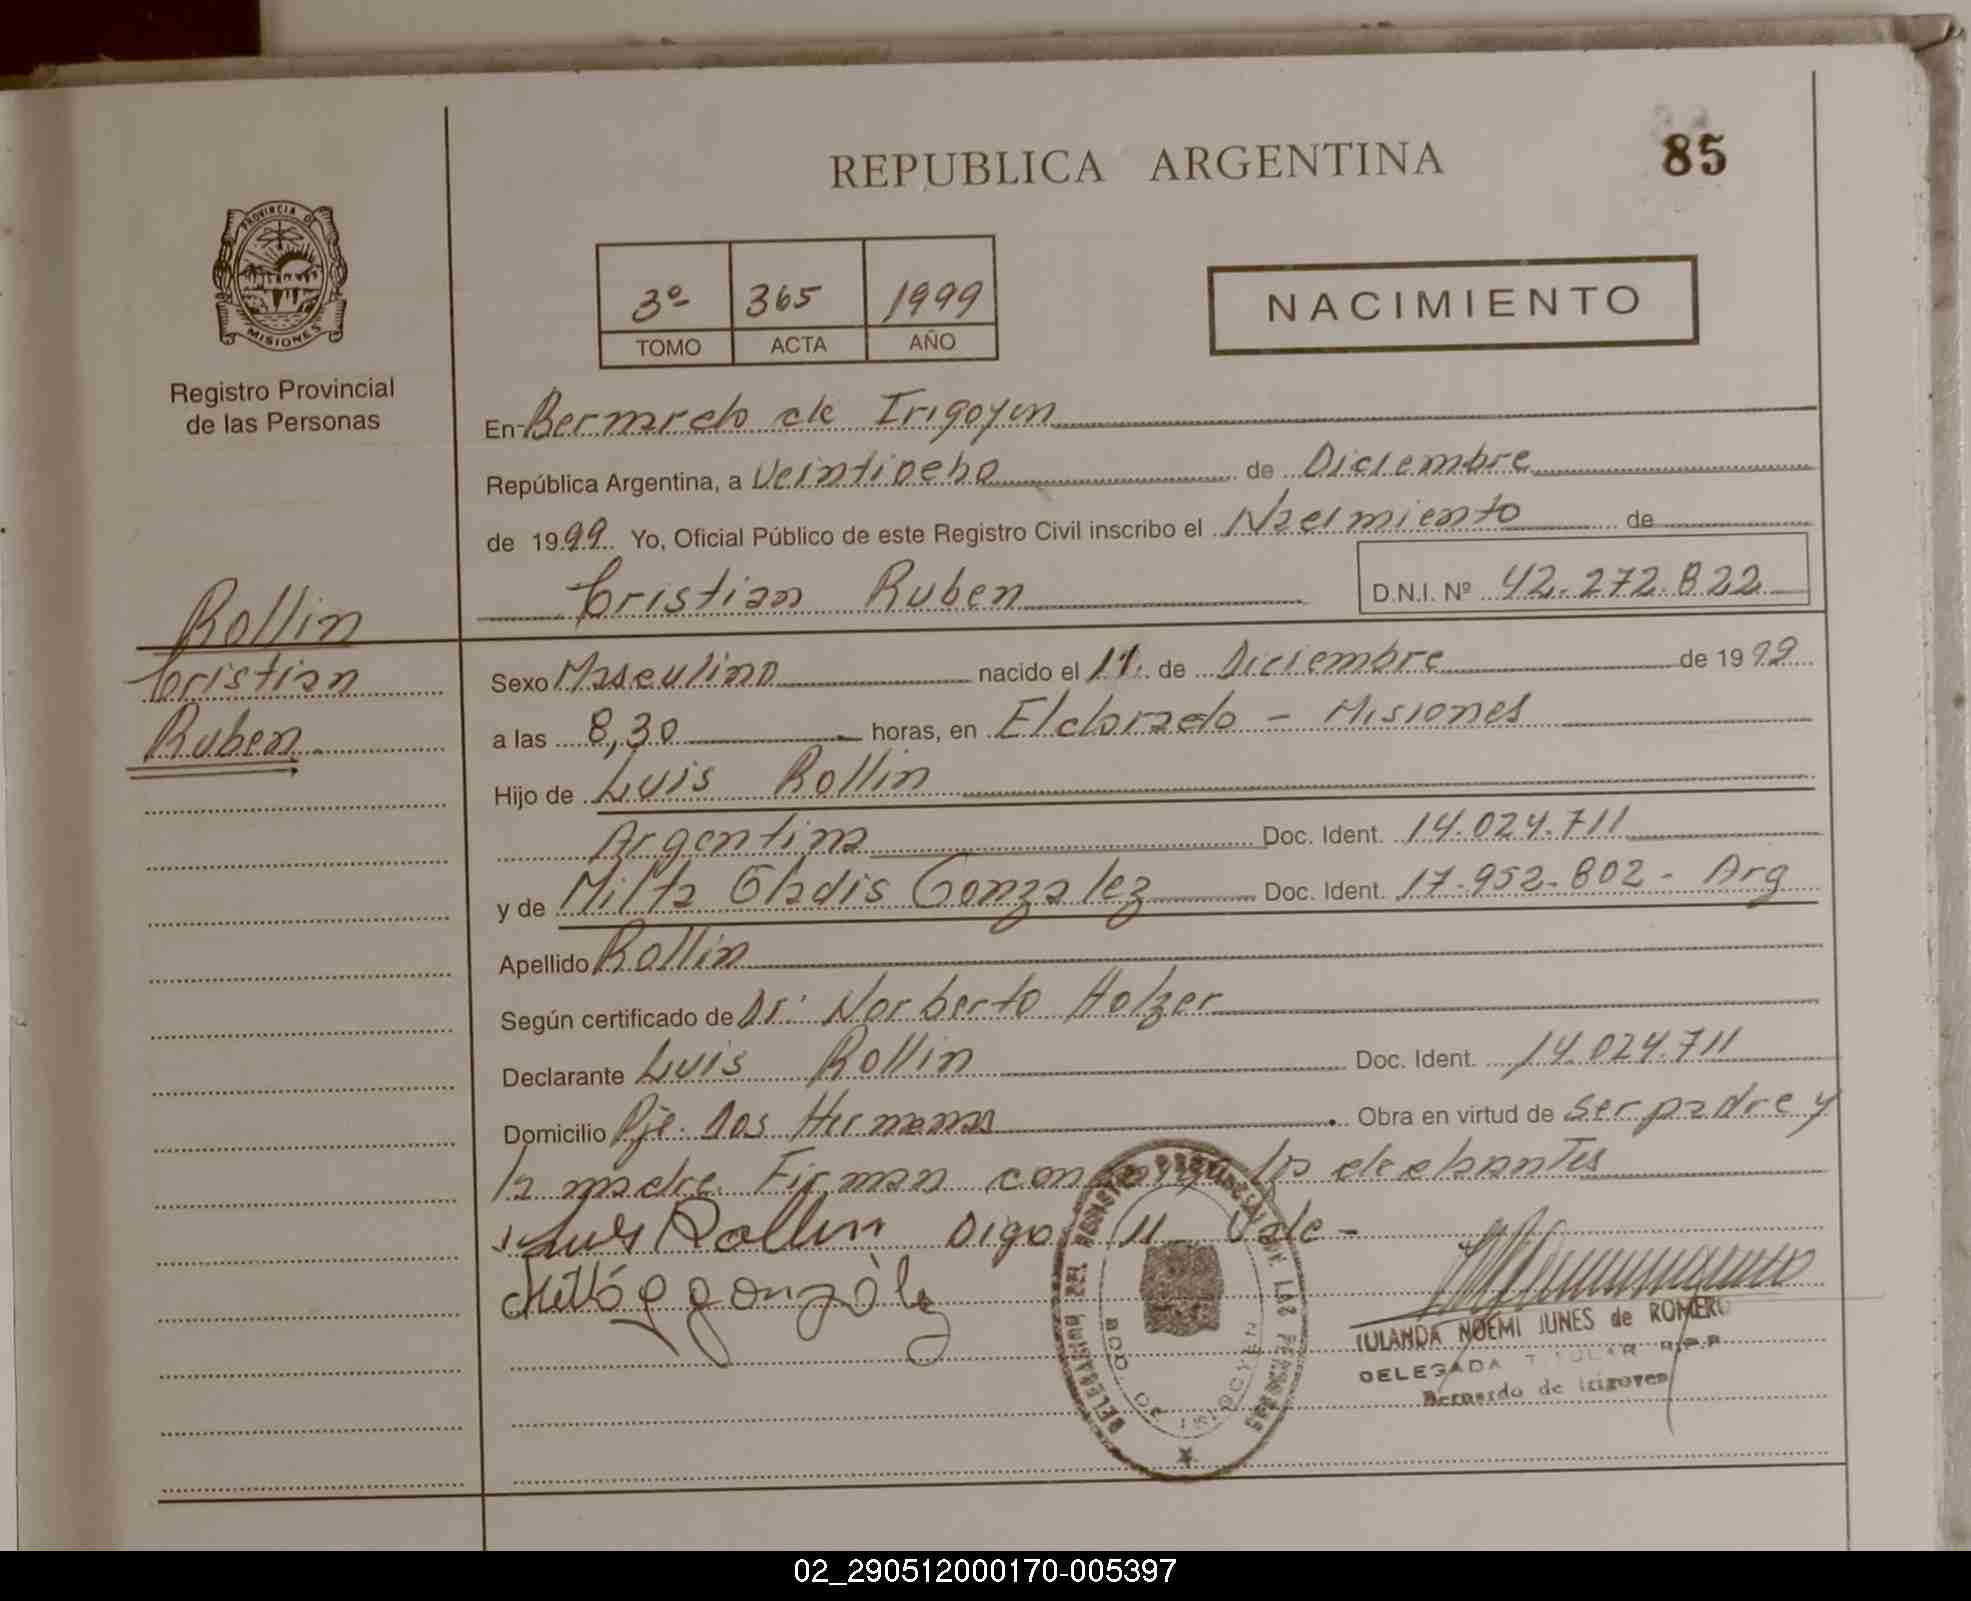 REPUBLICA ARGENTINA
85
PROVINCIA DE
MISIONES
Registro Provincial
de las Personas
3º 365 1999
TOMO ACTA AÑO
NACIMIENTO
En Bernardo de Irigoyen
República Argentina, a Veintiocho de Diciembre
de 1999 Yo, Oficial Público de este Registro Civil inscribo el Nacimiento de
Cristian Ruben D.N.I. Nº 42.272.822
Rollin
Cristian
Ruben
Sexo Masculino nacido el 11 de Diciembre de 1999
a las 8,30 horas, en Eldorado - Misiones
Hijo de Luis Rollin
Argentina Doc. Ident. 14.024.711
y de Milta Gladis Gonzalez Doc. Ident. 17.952.802 - Arg
Apellido Rollin
Según certificado de Dr: Norberto Holzer
Declarante Luis Rollin Doc. Ident. 14.024.711
Domicilio Pje. Dos Hermanas Obra en virtud de ser padre y
la madre Firman los
Luis Rollin Digo 11 Vale -
gonzále
IULANDA NOEMI JUNES de ROMERO
DELEGADA TITULAR R.P.P
Bernardo de Irigoyen
DELEGACION DEL REGISTRO PROVINCIAL DE LAS PERSONAS
BDO. DE IRIGOYEN
02_290512000170-005397